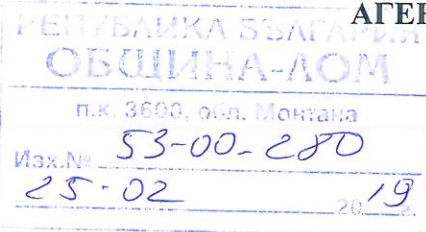 АГЕН
РЕПУБЛИКА БЪЛГАРИЯ
ОБЩИНА-ЛОМ
п.к. 3600, обл. Монтана
Изх.№ 53-00-280
25-02 2019 г.